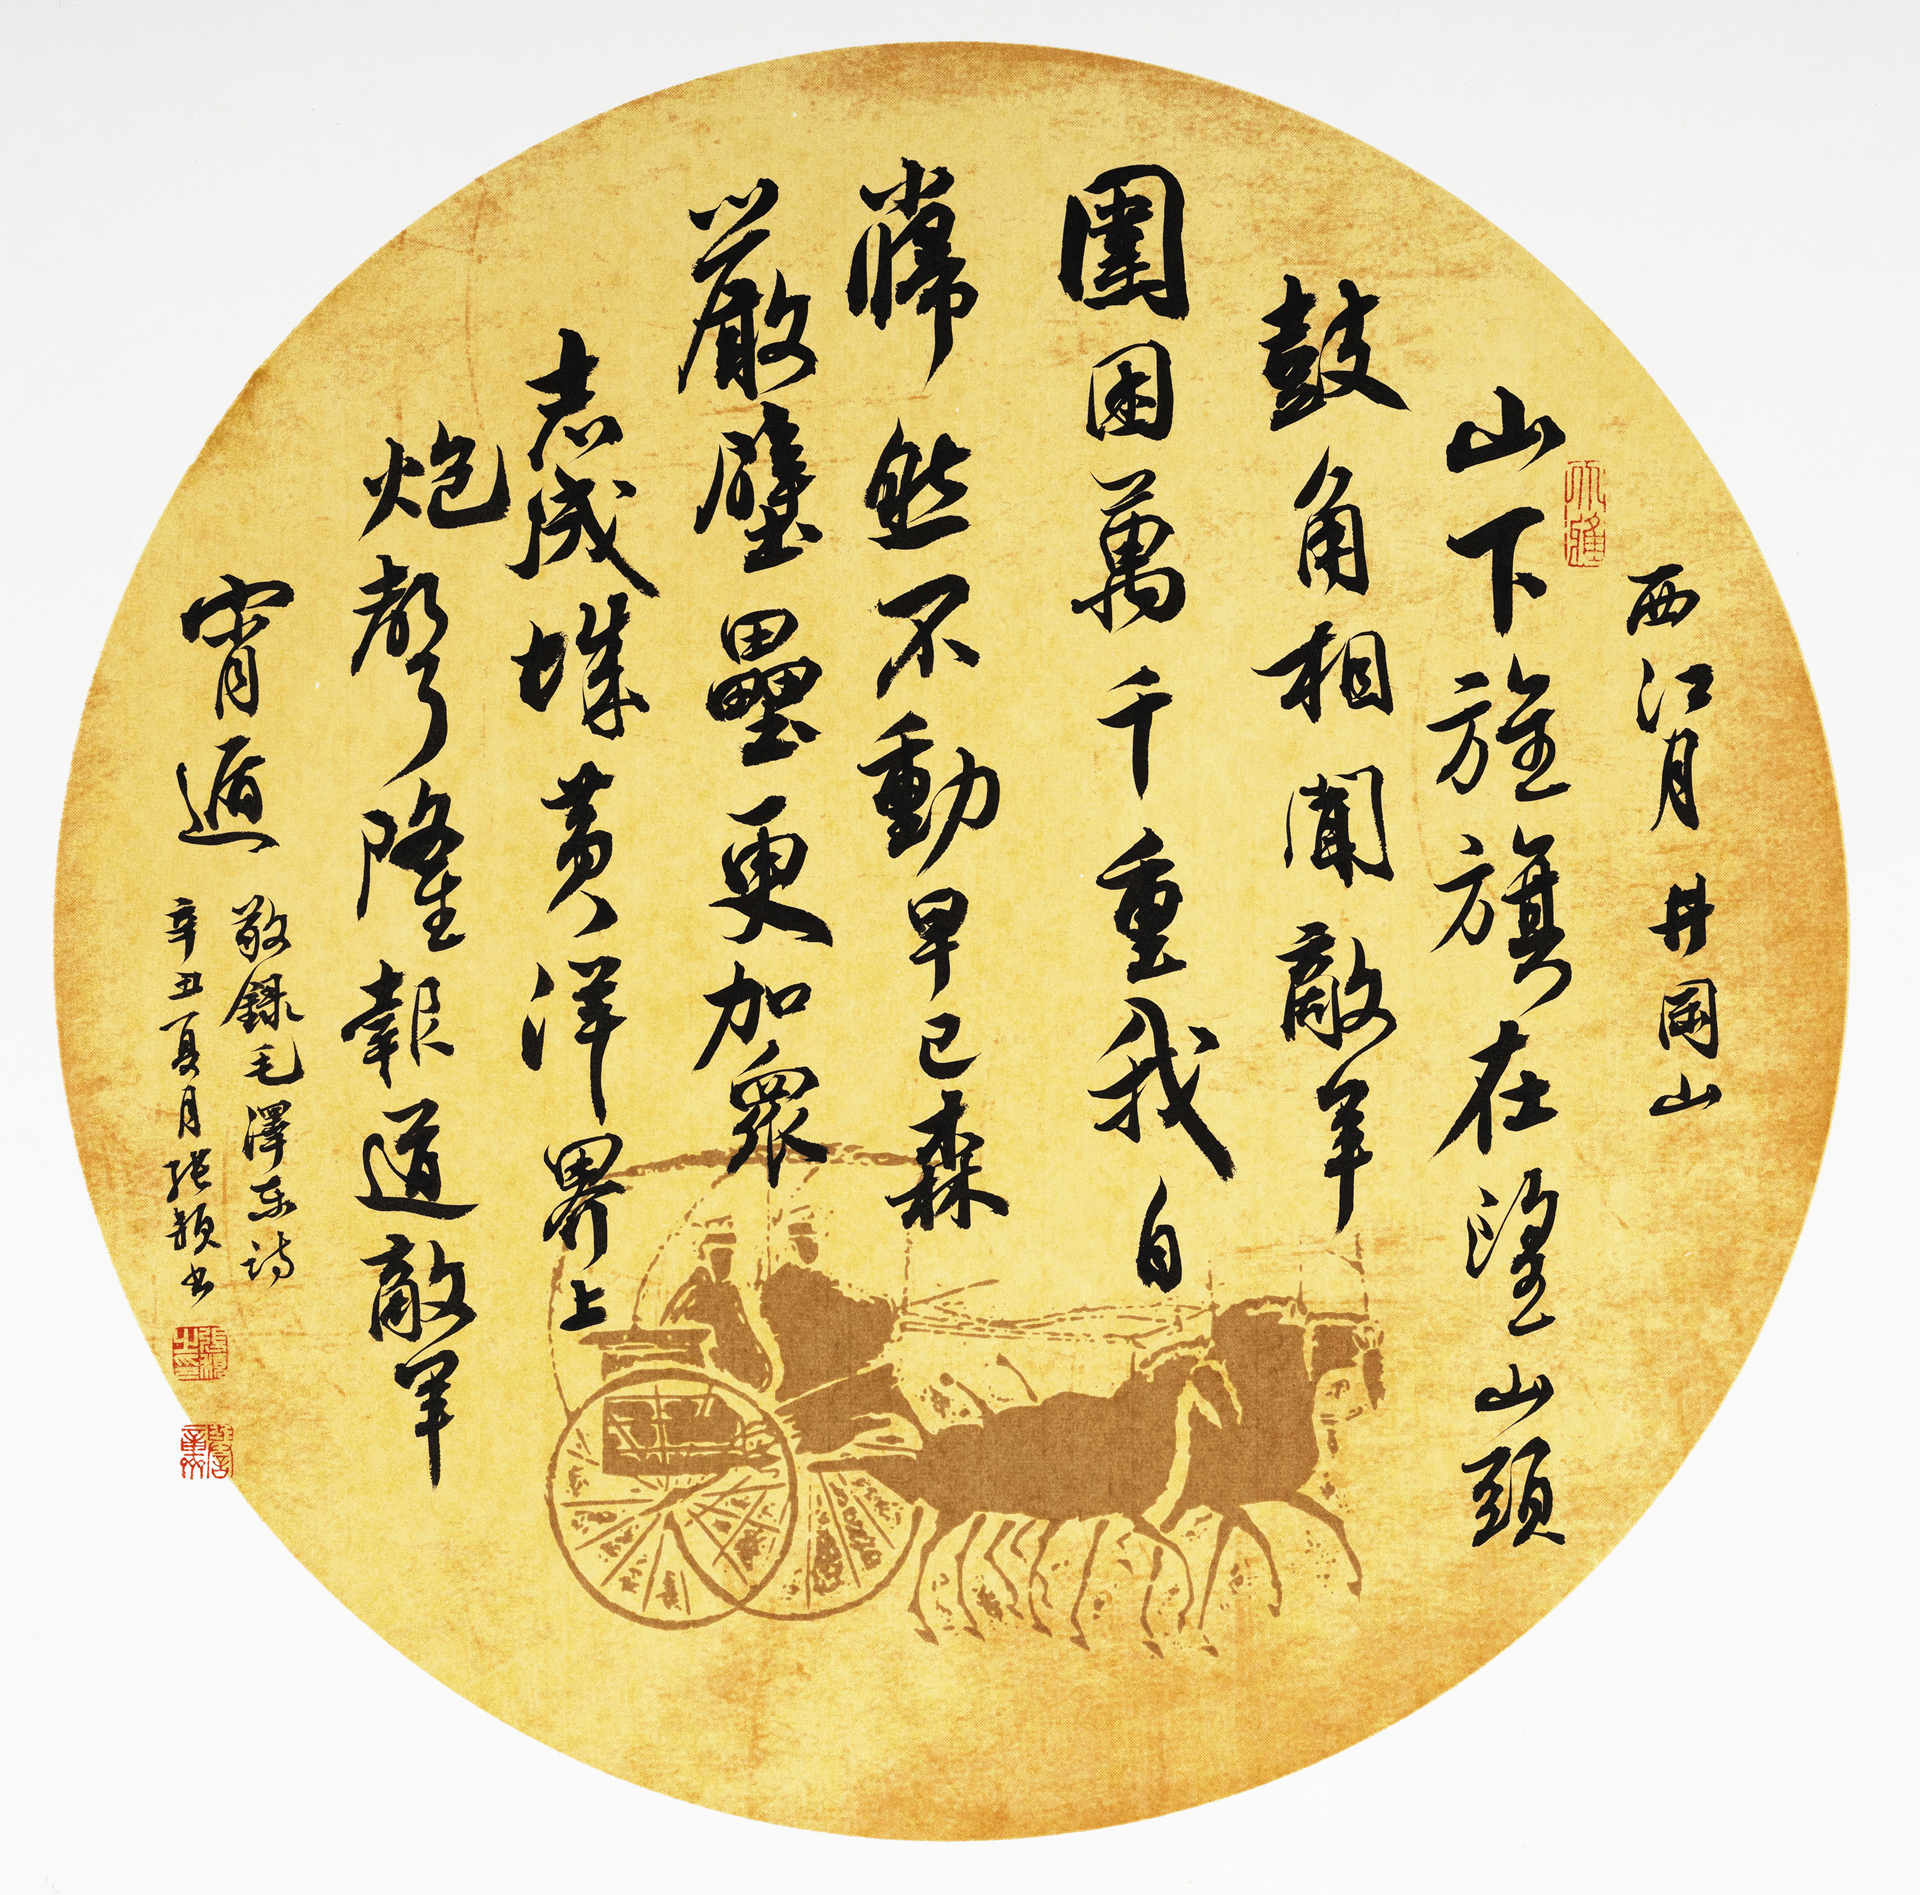 西江月 井岡山
山下旌旗在望山頭
鼓角相聞敵軍
圍困萬千重我自
巋然不動早已森
嚴壁壘更加眾
志成城黃洋界上
炮聲隆報道敵軍
宵遁
敬錄毛澤東詩
辛丑夏月張穎書
張穎之印